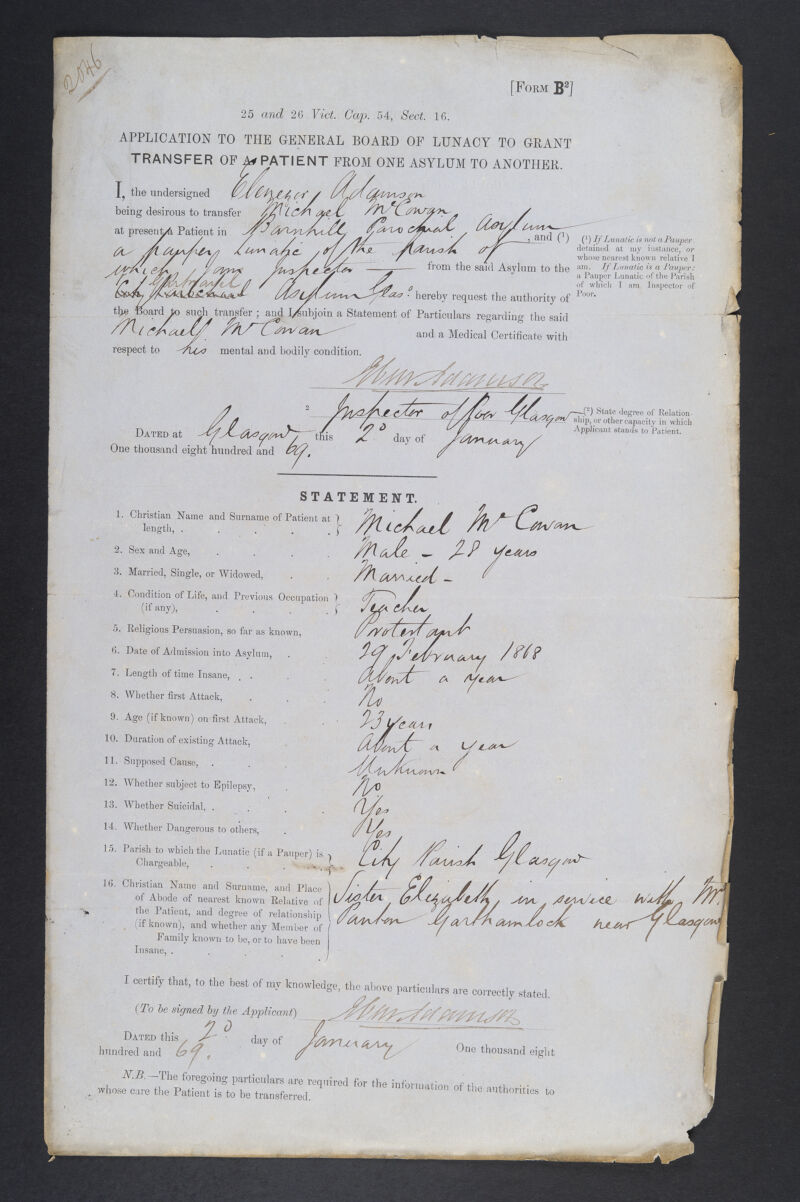 2046
[FORM B²]
25 and 26 Vict. Cap. 54, Sect. 16.
APPLICATION TO THE GENERAL BOARD OF LUNACY TO GRANT
TRANSFER OF A PATIENT FROM ONE ASYLUM TO ANOTHER.
I, the undersigned Ebenezer Adamson
being desirous to transfer Michael McCowan
at present a Patient in Barnhill Parochial Asylum, and (¹)
a pauper Lunatic of the parish of
which I am Inspector — from the said Asylum to the
Asylum Glas° hereby request the authority of
the Board to such transfer; and I subjoin a Statement of Particulars regarding the said
Michael McCowan and a Medical Certificate with
respect to his mental and bodily condition.
(¹) If Lunatic is not a Pauper
detained at my instance, or
whose nearest known relative I
am. If Lunatic is a Pauper:
a Pauper Lunatic of the Parish
of which I am Inspector of
Poor.
Eben Adamson
² Inspector of Poor Glasgow
(²) State degree of Relation-
ship, or other capacity in which
Applicant stands to Patient.
DATED at Glasgow this 2ᴰ day of January
One thousand eight hundred and 69.
STATEMENT.
1. Christian Name and Surname of Patient at
length, . . . . . } Michael McCowan
2. Sex and Age, . . . . Male – 28 years
3. Married, Single, or Widowed, . . Married –
4. Condition of Life, and Previous Occupation
(if any), . . . . . } Teacher
5. Religious Persuasion, so far as known, Protestant
6. Date of Admission into Asylum, . . 29 February 1868
7. Length of time Insane, . . . . About a year
8. Whether first Attack, . . . No
9. Age (if known) on first Attack, . . 23 years
10. Duration of existing Attack, . . About a year
11. Supposed Cause, . . . . Unknown
12. Whether subject to Epilepsy, . . No
13. Whether Suicidal, . . . . Yes
14. Whether Dangerous to others, . . Yes
15. Parish to which the Lunatic (if a Pauper) is
Chargeable, . . . . } City Parish Glasgow
16. Christian Name and Surname, and Place
of Abode of nearest known Relative of
the Patient, and degree of relationship
(if known), and whether any Member of
Family known to be, or to have been
Insane, . . . . .
Sister, Elizabeth in service with Mr.
Panton Garthamlock near Glasgow
I certify that, to the best of my knowledge, the above particulars are correctly stated.
(To be signed by the Applicant) Eben Adamson
DATED this 2ᴰ day of January One thousand eight
hundred and 69.
N.B.—The foregoing particulars are required for the information of the authorities to
whose care the Patient is to be transferred.